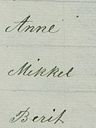 Anne
Mikkel
Berit